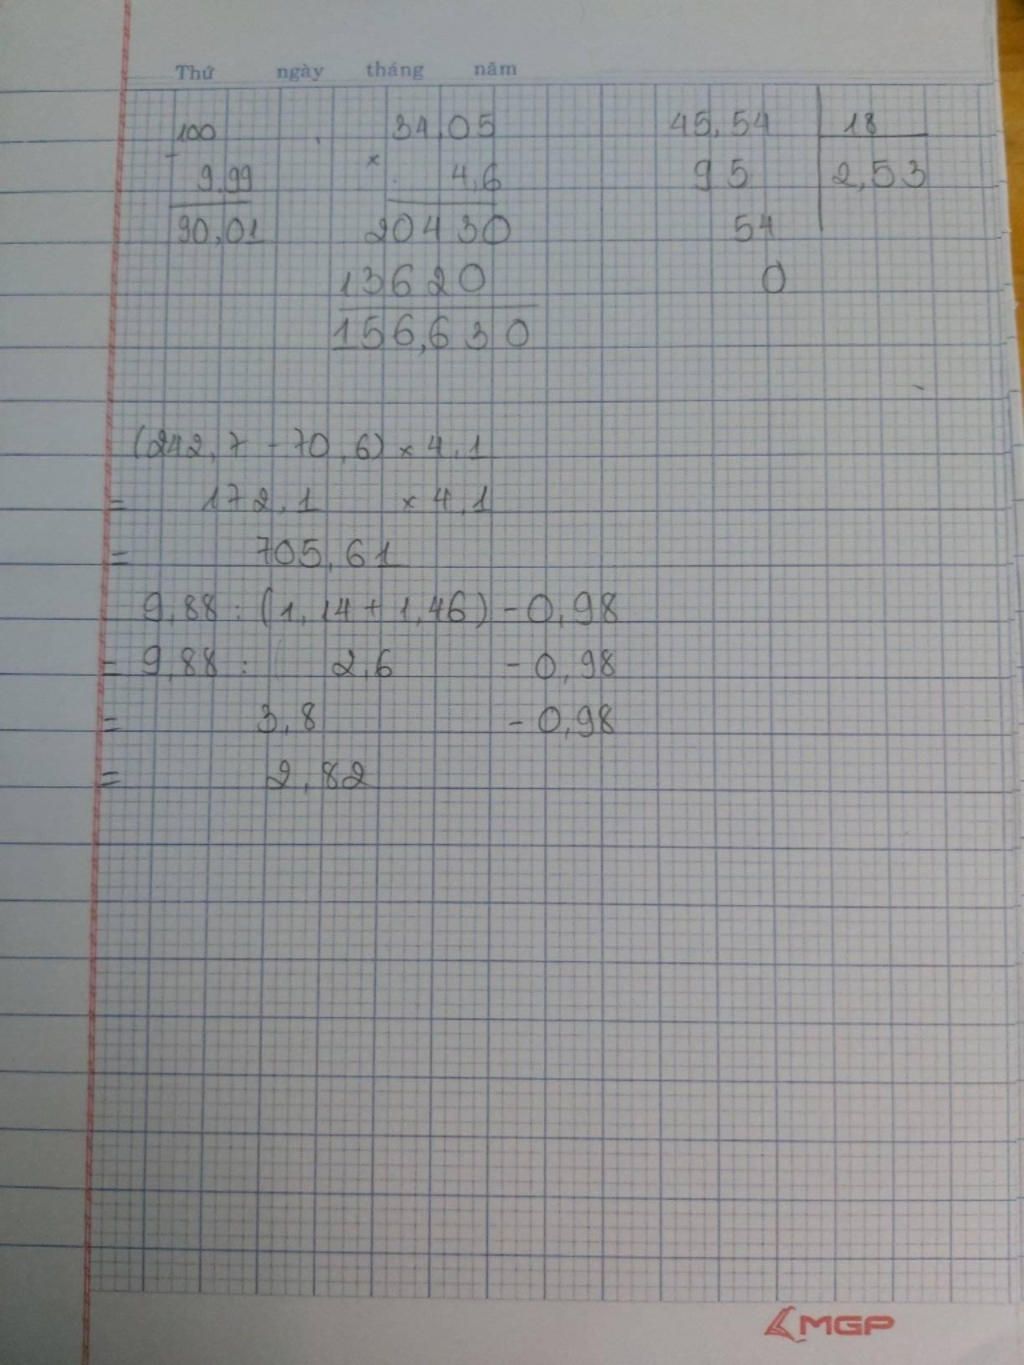 Thứ ngày tháng năm
100
-
9,99
90,01
34,05
×
4,6
20430
13620
156,630
45,54 18
95 2,53
54
0
(242,7 - 70,6) × 4,1
= 172,1 × 4,1
= 705,61
9,88 : (1,14 + 1,46) - 0,98
= 9,88 : 2,6 - 0,98
= 3,8 - 0,98
= 2,82
MGP